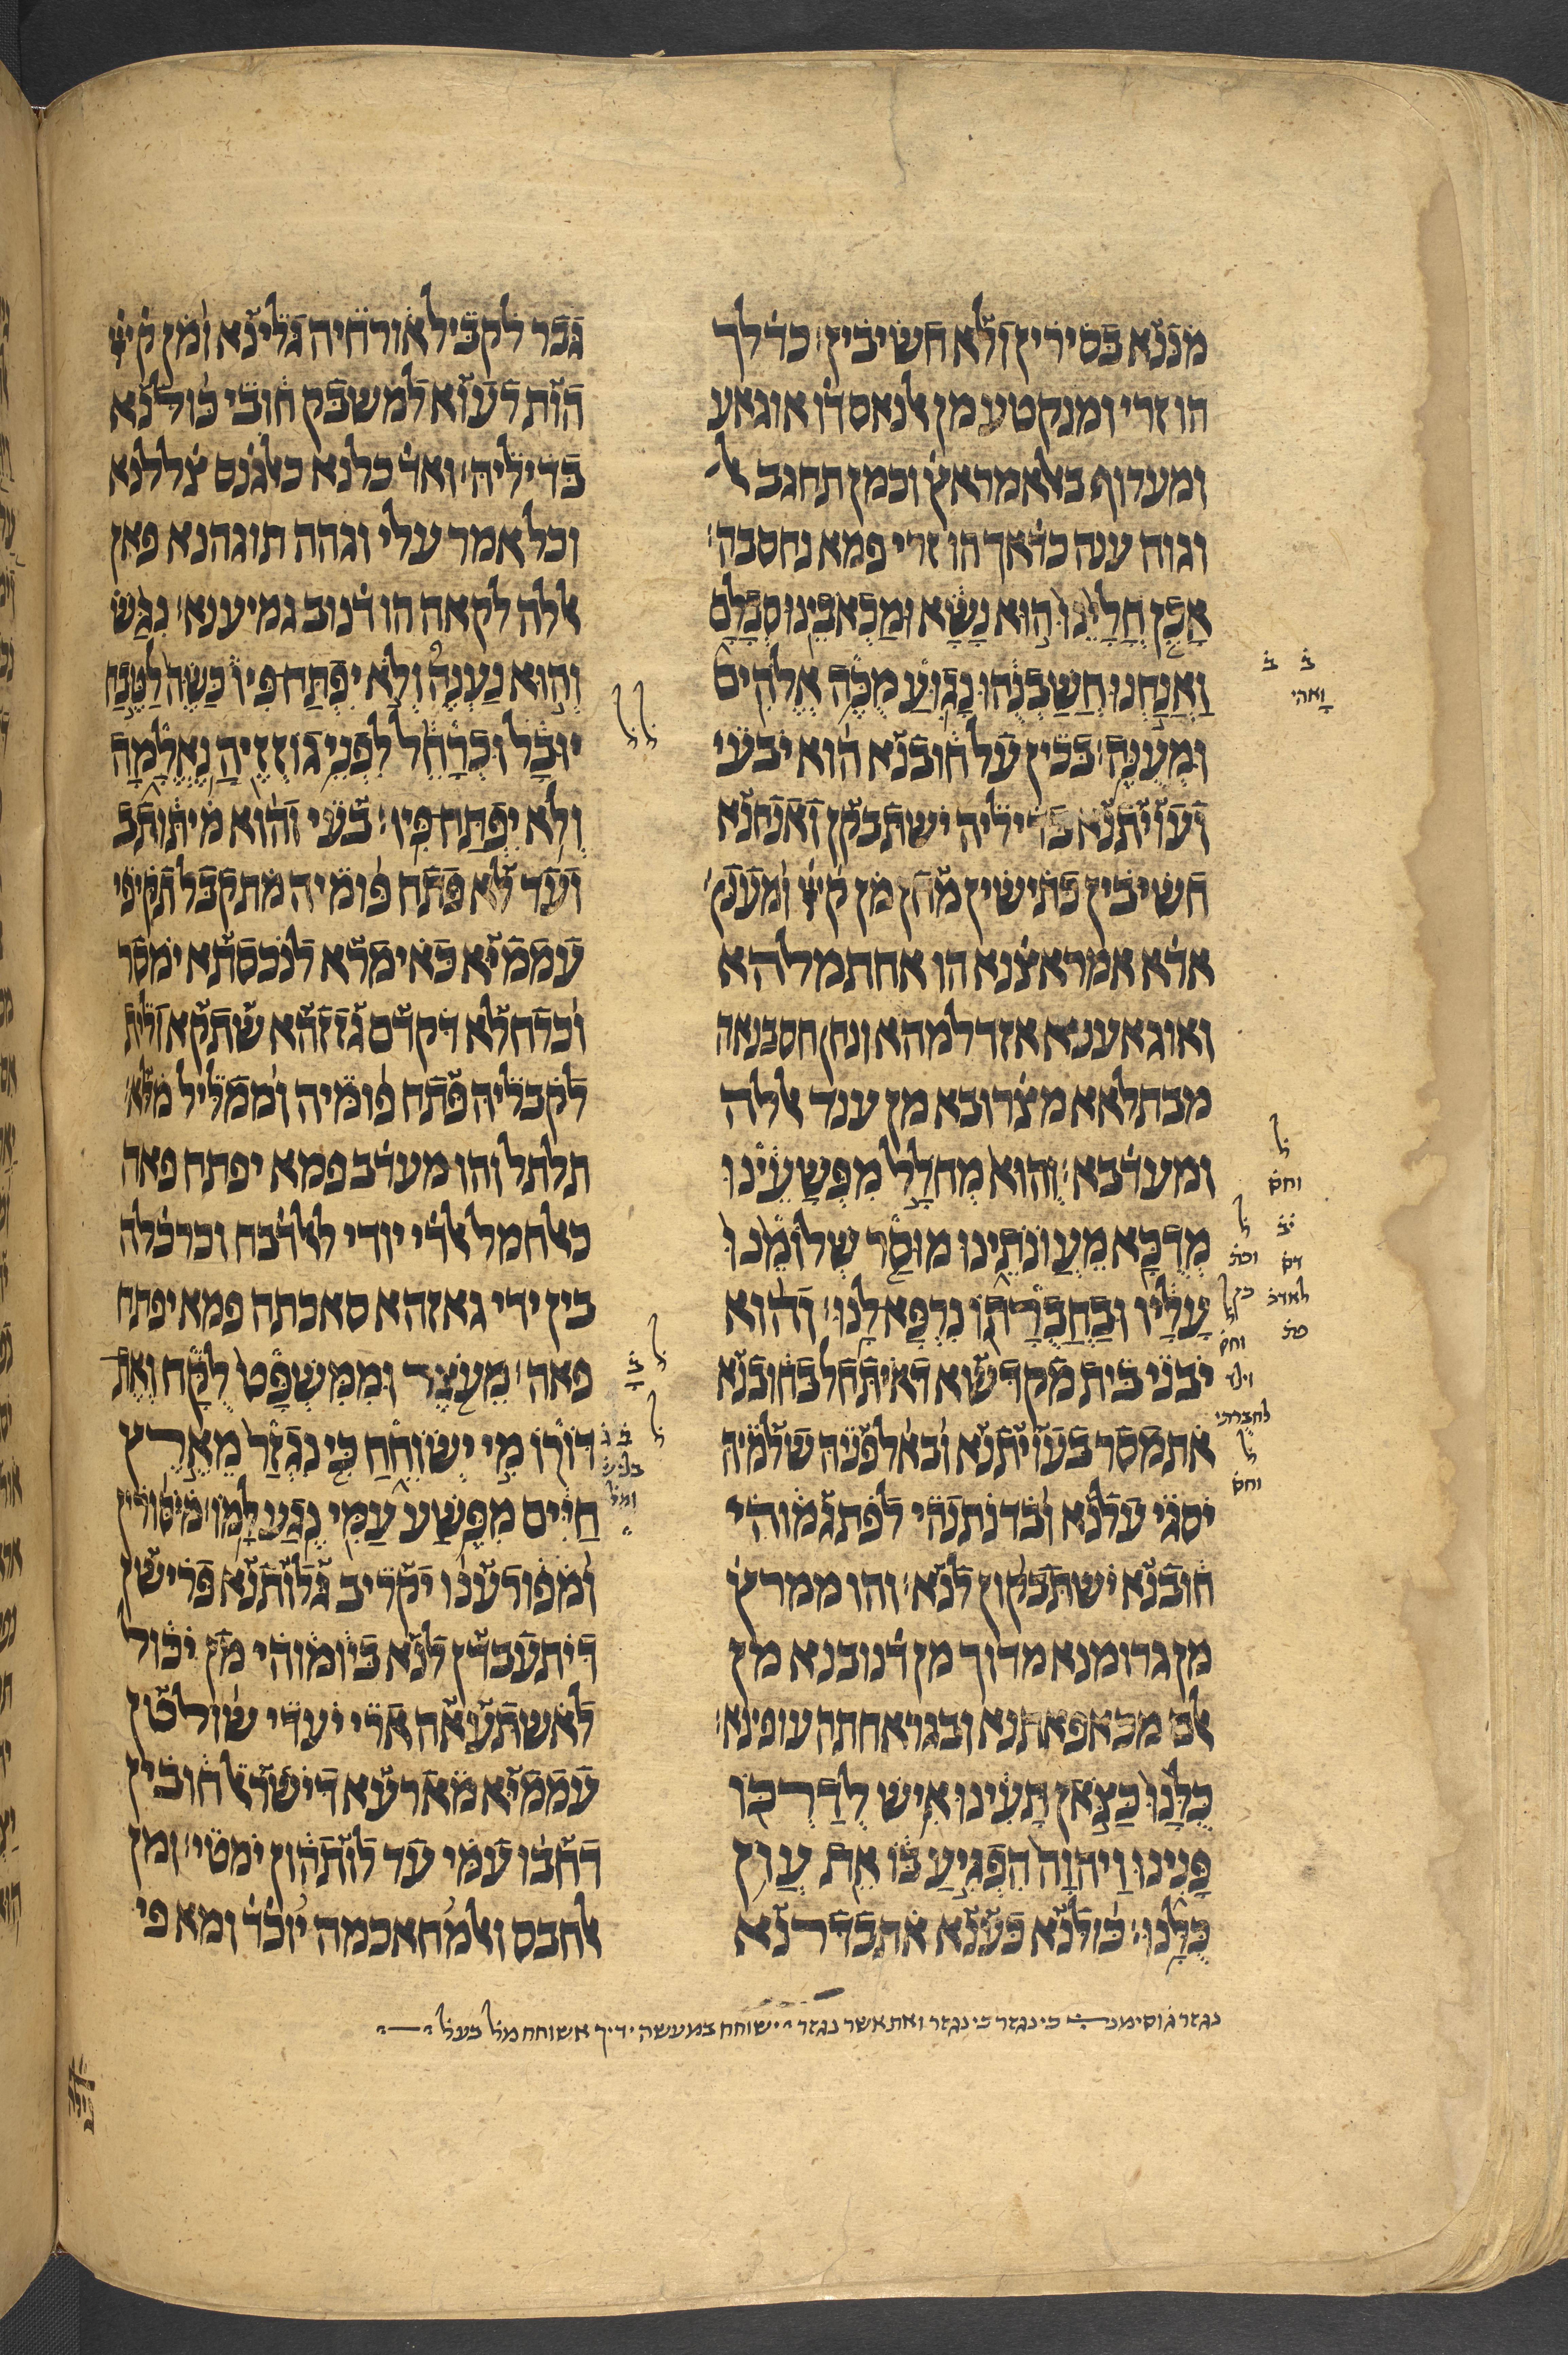 מננא בסירין ולא חשיבין׃ כדלך
הו זרי ומנקטע מן אלנאס דו אוגאע
ומערוף באלאמראץ וכמן תחגב אל
וגוה ענה כדאך הו זרי פמא נחסבה׃
אכן חליינו הוא נשא ומכאבינו סבלם
ואנחנו חשבנהו נגוע מכה אלהים
ומענה׃ בכין על חובנא הוא יבעי
ועויתנא בדיליה ישתבקן ואנחנא
חשיבין כתישין מחן מן קדם ומענן׃
אדא אמראצנא הו אחתמלהא
ואוגאענא אזדלמהא ונחן חסבנאה
מבתלאא מצרובא מן ענד אללה
ומעדבא׃ והוא מחלל מפשעינו
מדכא מעונתינו מוסר שלומנו
עליו ובחברתו נרפא לנו׃ והוא
יבני בית מקדשא דאיתחל בחובנא
אתמסר בעויתנא ובאלפניה שלמיה
יסגי עלנא ובדנתנהי לפתגמוהי
חובנא ישתבקון לנא׃ והו ממרץ
מן גרומנא מדוך מן דנובנא מן
אלם מכאפאתנא ובגראחתה עופינא׃
כלנו כצאן תעינו איש לדרכו
פנינו ויהוה הפגיע בו את עון
כלנו׃ כולנא כענא אתבדרנא
גבר לקביל אורחיה גלינא ומן קדם
הות רעוא למשבק חובי כולנא
בדיליה׃ ואד כלנא כאלגנס צללנא
וכל אמר עלי וגהה תוגהנא פאן
אללה לקאה הו דנוב גמיענא׃ נגש
והוא נענה ולא יפתח פיו כשה לטבח
יובל וכרחל לפני גוזזיה נאלמה
ולא יפתח פיו׃ בעי והוא מיתותב
ועד לא פתח פומיה מתקבל תקיפי
עממיא כאימרא לנכסתא ימסר
וכרחלא דקדם גזזהא שתקא ולית
לקבליה פתח פומיה וממליל מלא׃
תלתל והו מערב פמא יפתח פאה
כאלחמל אלדי יודי ללדבח וכרכלה
בין ידי גאזהא סאכתה פמא יפתח
פאה׃ מעצר וממשפט לקח ואת
דורו מי ישוחח כי נגזר מארץ
חיים מפשע עמי נגע למו׃ מיסורין
ומפורענו יקריב גלותנא פרישן
דיתעבדן לנא ביומוהי מן יכול
לאשתעאה ארי יעדי שולטן
עממיא מארעא דישראל חובין
דחבו עמי עד לותהון ימטי׃ ומן
אלחבס ואלמחאכמה יוכד ומא פי
נגזר ג וסימנ כי נגזר כי נגזר ואת אשר נגזר ישוחח במעשה ידיך אשוחח מל בעל